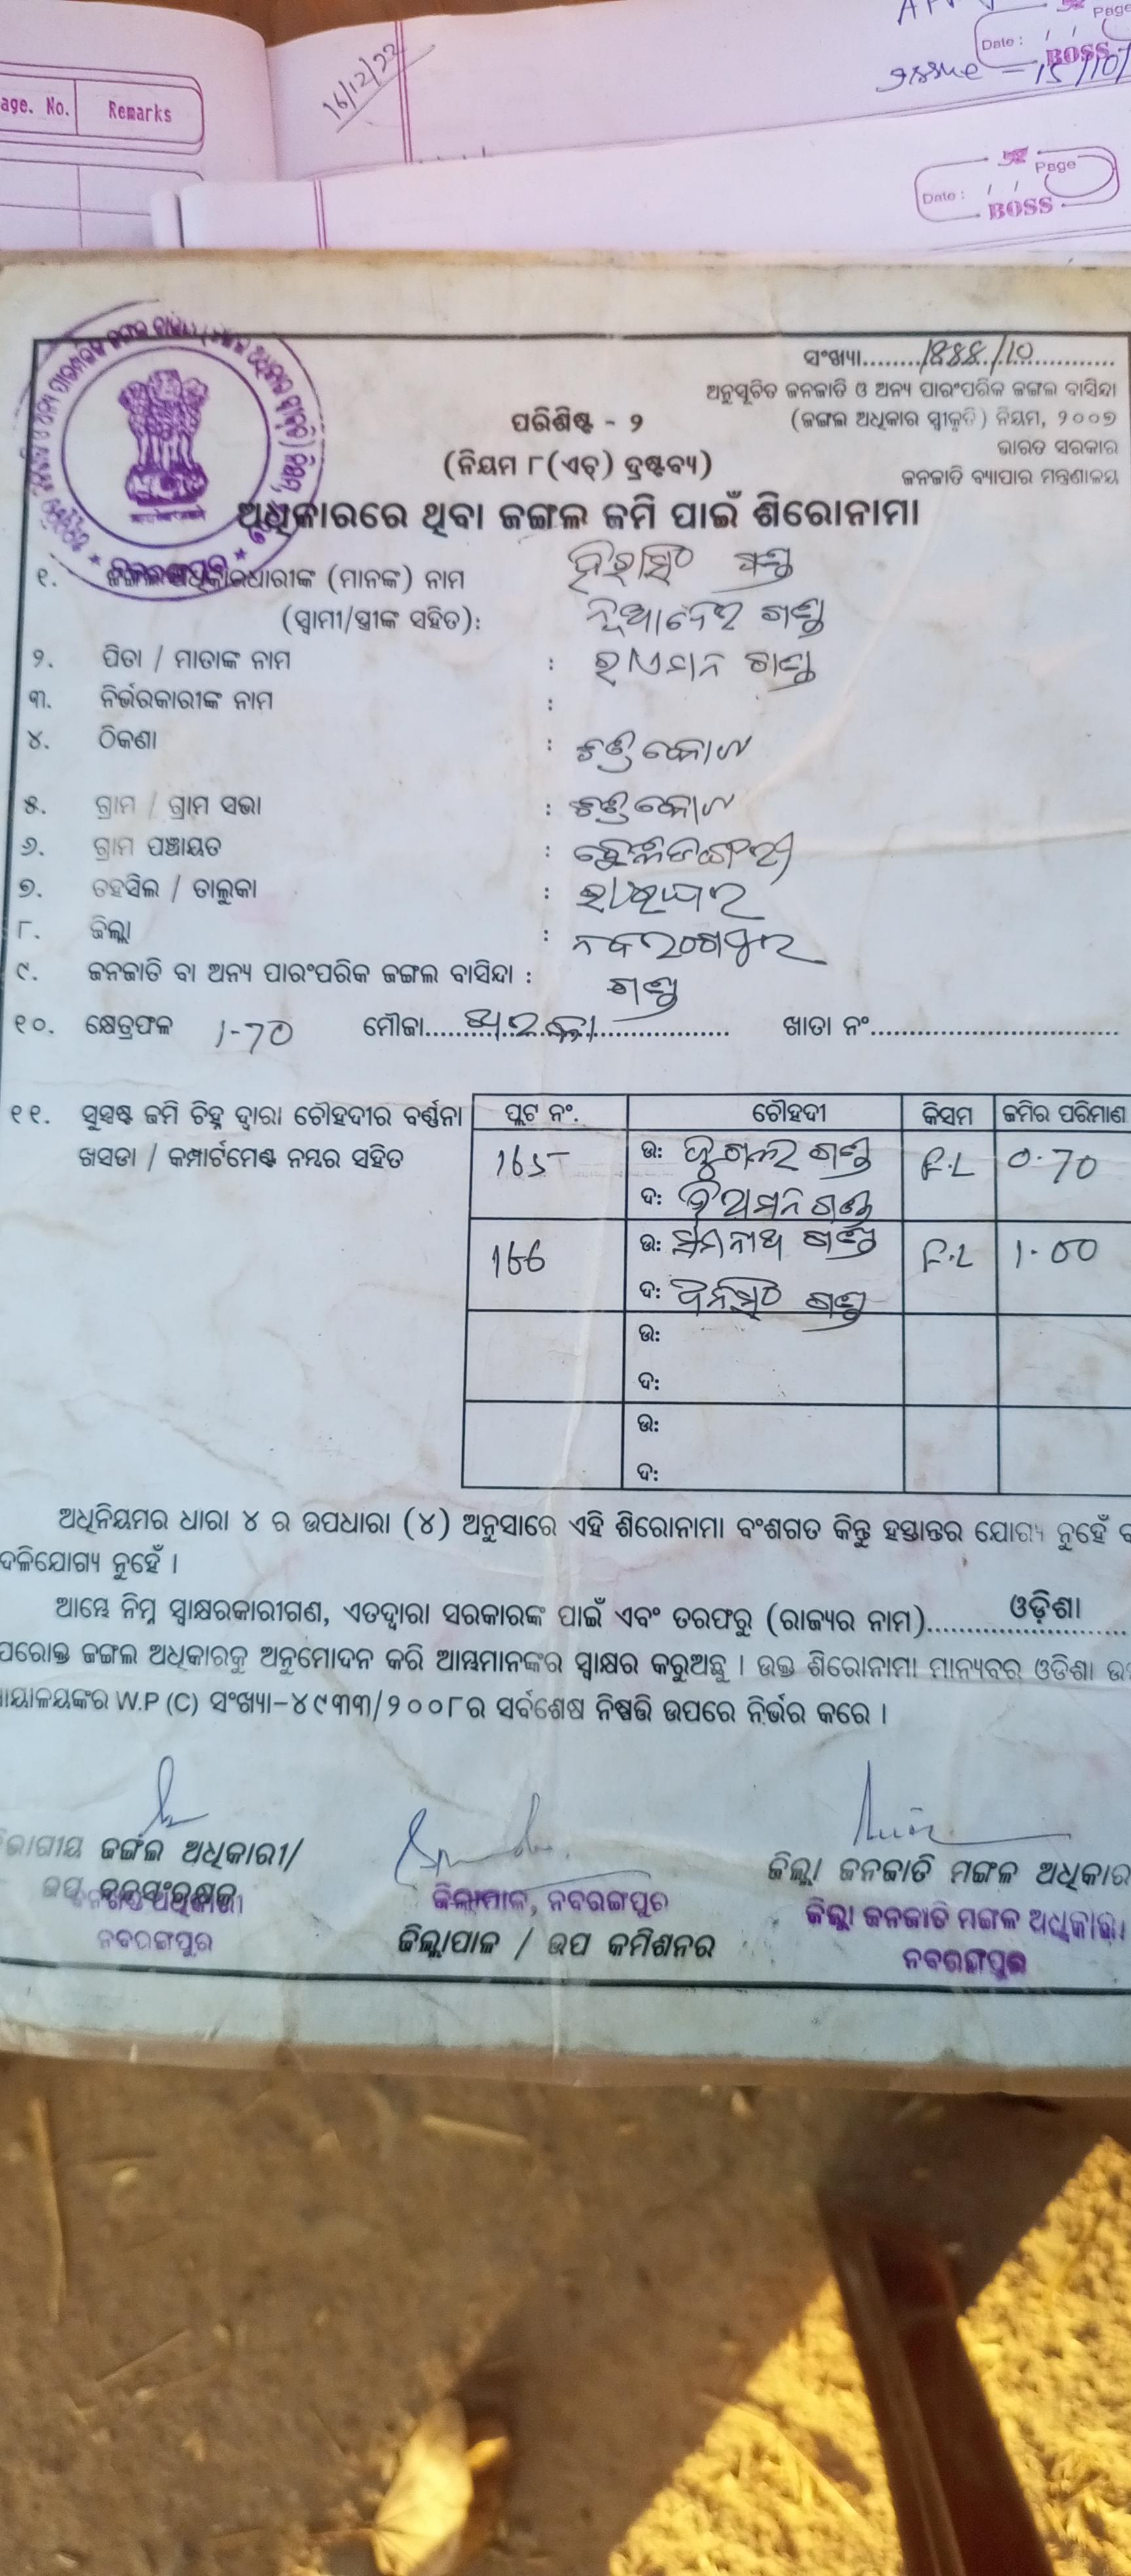 16/12/22
Page
Date :
BOSS
Issue - 15/10/
age. No.
Remarks
Page
Date :
BOSS
ସଂଖ୍ୟା........1888/10................
ଅନୁସୂଚିତ ଜନଜାତି ଓ ଅନ୍ୟ ପାରଂପରିକ ଜଙ୍ଗଲ ବାସିନ୍ଦା
(ଜଙ୍ଗଲ ଅଧିକାର ସ୍ୱୀକୃତି) ନିୟମ, ୨୦୦୭
ଭାରତ ସରକାର
ଜନଜାତି ବ୍ୟାପାର ମନ୍ତ୍ରଣାଳୟ
ପରିଶିଷ୍ଟ - ୨
(ନିୟମ ୮(ଏଚ୍) ଦ୍ରଷ୍ଟବ୍ୟ)
ଅଧିକାରରେ ଥିବା ଜଙ୍ଗଲ ଜମି ପାଇଁ ଶିରୋନାମା
୧. ଜଙ୍ଗଲ ଅଧିକାରଧାରୀଙ୍କ (ମାନଙ୍କ) ନାମ ଗଣ୍ଡ
(ସ୍ୱାମୀ/ସ୍ତ୍ରୀଙ୍କ ସହିତ): ଗଣ୍ଡ
୨. ପିତା / ମାତାଙ୍କ ନାମ : ଗଣ୍ଡ
୩. ନିର୍ଭରକାରୀଙ୍କ ନାମ :
୪. ଠିକଣା :
୫. ଗ୍ରାମ / ଗ୍ରାମ ସଭା :
୬. ଗ୍ରାମ ପଞ୍ଚାୟତ :
୭. ତହସିଲ / ତାଲୁକା : ରାଇଘର
୮. ଜିଲ୍ଲା : ନବରଂଗପୁର
୯. ଜନଜାତି ବା ଅନ୍ୟ ପାରଂପରିକ ଜଙ୍ଗଲ ବାସିନ୍ଦା : ଗଣ୍ଡ
୧୦. କ୍ଷେତ୍ରଫଳ 1-70 ମୌଜା.................... ଖାତା ନଂ....................
୧୧. ସୁସ୍ପଷ୍ଟ ଜମି ଚିହ୍ନ ଦ୍ୱାରା ଚୌହଦୀର ବର୍ଣ୍ଣନା
ଖସଡା / କମ୍ପାର୍ଟମେଣ୍ଟ ନମ୍ବର ସହିତ
ପ୍ଲଟ ନଂ. ଚୌହଦୀ କିସମ ଜମିର ପରିମାଣ
165 ଉ: ଗଣ୍ଡ F.L 0.70
ଦ: ଗଣ୍ଡ
166 ଉ: ଗଣ୍ଡ F.L 1.00
ଦ: ଗଣ୍ଡ
ଉ:
ଦ:
ଉ:
ଦ:
ଅଧିନିୟମର ଧାରା ୪ ର ଉପଧାରା (୪) ଅନୁସାରେ ଏହି ଶିରୋନାମା ବଂଶଗତ କିନ୍ତୁ ହସ୍ତାନ୍ତର ଯୋଗ୍ୟ ନୁହେଁ ବ
ଦଳିଯୋଗ୍ୟ ନୁହେଁ ।
ଆମ୍ଭେ ନିମ୍ନ ସ୍ୱାକ୍ଷରକାରୀଗଣ, ଏତଦ୍ୱାରା ସରକାରଙ୍କ ପାଇଁ ଏବଂ ତରଫରୁ (ରାଜ୍ୟର ନାମ)......ଓଡ଼ିଶା......
ପରୋକ୍ତ ଜଙ୍ଗଲ ଅଧିକାରକୁ ଅନୁମୋଦନ କରି ଆମ୍ଭମାନଙ୍କର ସ୍ୱାକ୍ଷର କରୁଅଛୁ । ଉକ୍ତ ଶିରୋନାମା ମାନ୍ୟବର ଓଡିଶା ଉ
ାୟାଳୟଙ୍କର W.P (C) ସଂଖ୍ୟା-୪୯୩୩/୨୦୦୮ର ସର୍ବଶେଷ ନିଷ୍ପତ୍ତି ଉପରେ ନିର୍ଭର କରେ ।
ଭାଗୀୟ ଜଙ୍ଗଲ ଅଧିକାରୀ/
ଉପ ବନସଂରକ୍ଷକ
ନବରଙ୍ଗପୁର
ଜିଲ୍ଲାପାଳ, ନବରଙ୍ଗପୁର
ଜିଲ୍ଲାପାଳ / ଉପ କମିଶନର
ଜିଲ୍ଲା ଜନଜାତି ମଙ୍ଗଳ ଅଧିକାର
ଜିଲ୍ଲା ଜନଜାତି ମଙ୍ଗଳ ଅଧିକାରୀ
ନବରଙ୍ଗପୁର